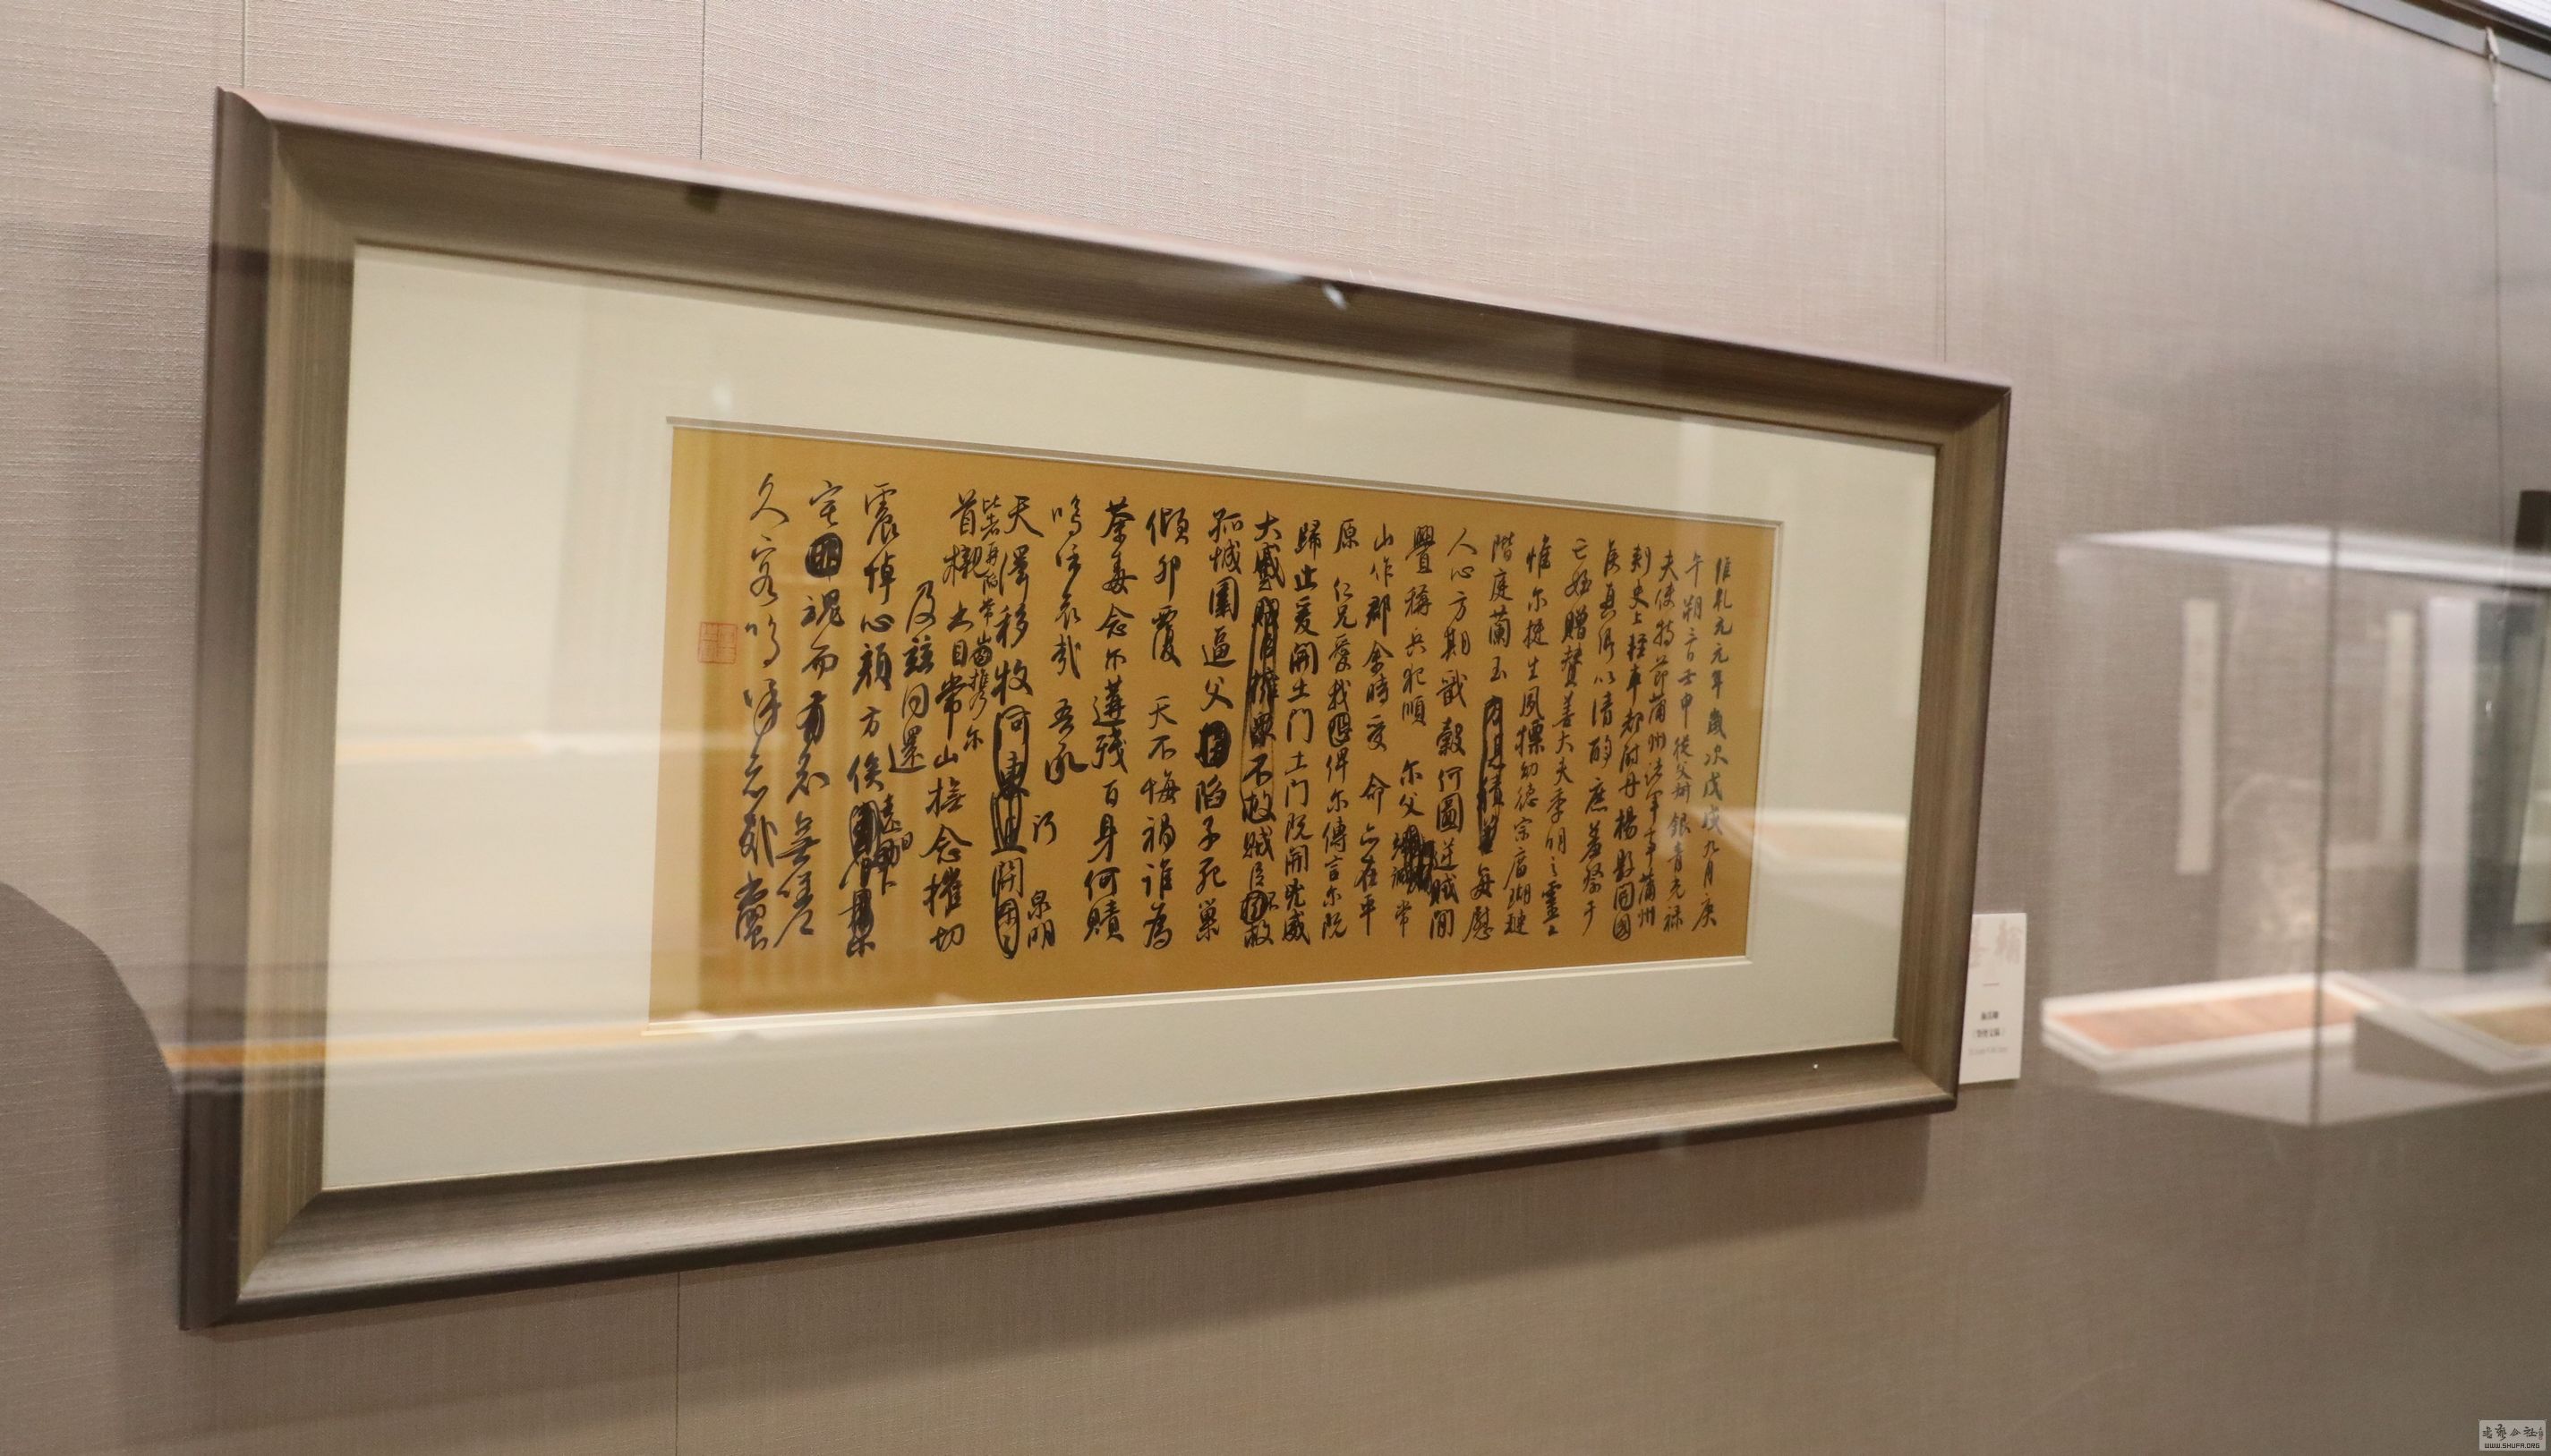 維乾元元年歲次戊戌九月庚
午朔三日壬申從父弟銀青光祿
夫使持節蒲州諸軍事蒲州
刺史上輕車都尉丹楊縣開國
侯真卿以清酌庶羞祭于
亡姪贈贊善大夫季明之靈曰
惟尔挺生夙標幼德宗廟瑚璉
階庭蘭玉每慰
人心方期戩穀何圖逆賊閒
釁稱兵犯順尔父竭誠常
山作郡余時受命亦在平
原仁兄愛我俾尔傳言尔既
歸止爰開土門土門既開兇威
大蹙賊臣擁眾不救賊臣不救
孤城圍逼父陷子死巢
傾卵覆天不悔禍誰為
荼毒念尔遘殘百身何贖
嗚呼哀哉吾承
天澤移牧河東近
泉明
比者再陷常山攜尔
首櫬及茲同還
撫念摧切
震悼心顏方俟遠日
卜尔幽宅
魂而有知無嗟
久客嗚呼哀哉尚饗
WWW.SHUFA.ORG